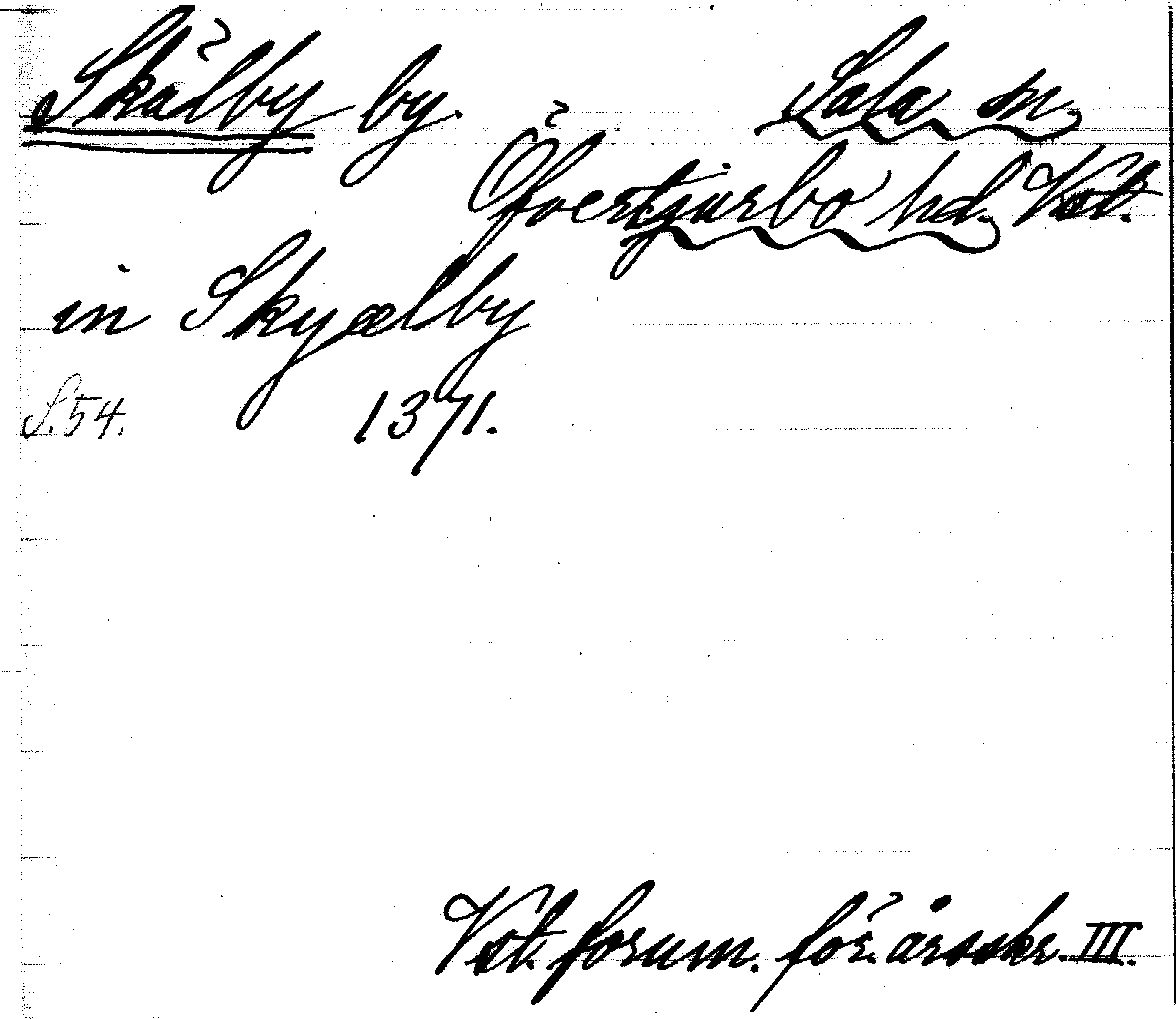 Skälby by. Sala sn
Öfvertjurbo hd. Vstl.
in Skyælby
S. 54. 1371.
Vstl. fornm. för. årsskr. III.